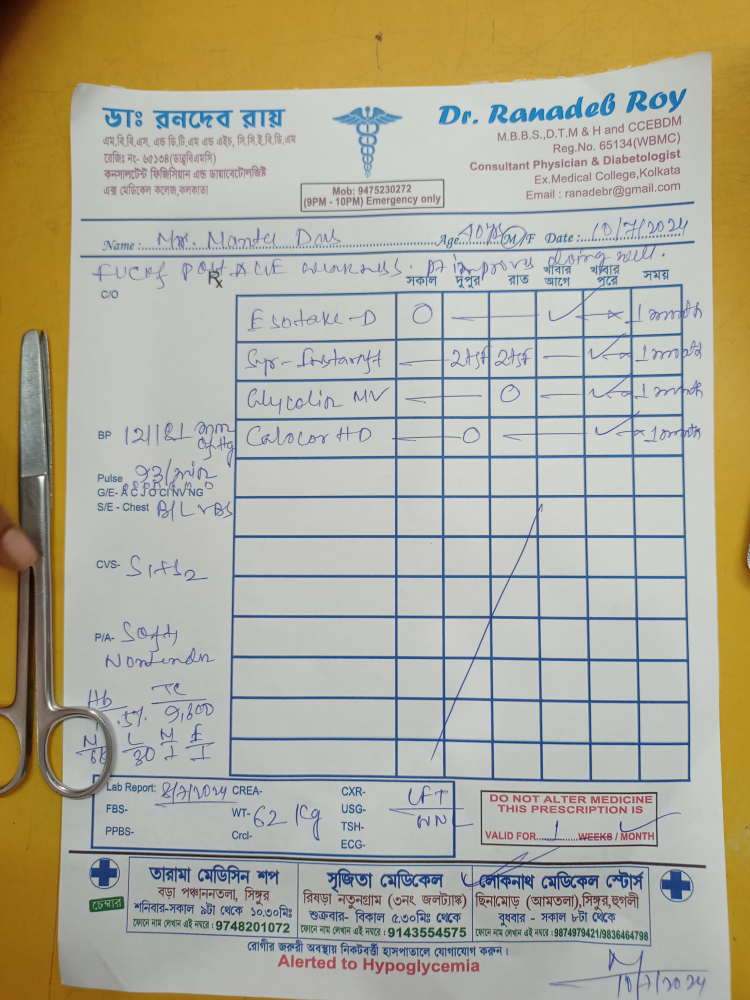 ডাঃ রনদেব রায়
এম.বি.বি.এস, এন্ড ডি.টি.এম এন্ড এইচ, সি.সি.ই.বি.ডি.এম
রেজিঃ নং- ৬৫১৩৪(ডাব্লুবিএমসি)
কনসালটেন্ট ফিজিসিয়ান এন্ড ডায়াবেটোলজিষ্ট
এক্স মেডিকেল কলেজ,কলকাতা
Mob: 9475230272
(9PM - 10PM) Emergency only
Dr. Ranadeb Roy
M.B.B.S.,D.T.M & H and CCEBDM
Reg.No. 65134(WBMC)
Consultant Physician & Diabetologist
Ex.Medical College,Kolkata
Email : ranadebr@gmail.com
Name : Das Age 40 M/F Date : 10/7/2024
weakness. Pt improves doing well.
Rx
C/O
সকাল দুপুর রাত খাবার আগে খাবার পরে সময়
D O 1 month
Syr - 2tsf 2tsf 1 month
MV O 1 month
HD O 1 month
BP 121/81 mm of Hg
Pulse 93/min
G/E- A C J O CI NV NG
S/E - Chest B/L VBS
CVS- S1+S2
P/A- Soft,
Hb TC
9,600
N L M E
30
Lab Report: 8/7/2024 CREA- CXR- LFT
FBS- WT- 62 Kg USG- WNL
PPBS- Crcl- TSH-
ECG-
DO NOT ALTER MEDICINE
THIS PRESCRIPTION IS
VALID FOR 1 WEEKS / MONTH
চেম্বার
তারামা মেডিসিন শপ
বড়া পঞ্চাননতলা, সিঙ্গুর
শনিবার-সকাল ৯টা থেকে ১০.৩০মিঃ
ফোনে নাম লেখান এই নম্বরে : 9748201072
সৃজিতা মেডিকেল
রিষড়া নতুনগ্রাম (৩নং জলট্যাঙ্ক)
শুক্রবার- বিকাল ৫.৩০মিঃ থেকে
ফোনে নাম লেখান এই নম্বরে : 9143554575
লোকনাথ মেডিকেল স্টোর্স
ছিনামোড় (আমতলা),সিঙ্গুর,হুগলী
বুধবার - সকাল ৮টা থেকে
ফোনে নাম লেখান এই নম্বরে : 9874979421/9836464798
রোগীর জরুরী অবস্থায় নিকটবর্ত্তী হাসপাতালে যোগাযোগ করুন।
Alerted to Hypoglycemia
10/7/2024